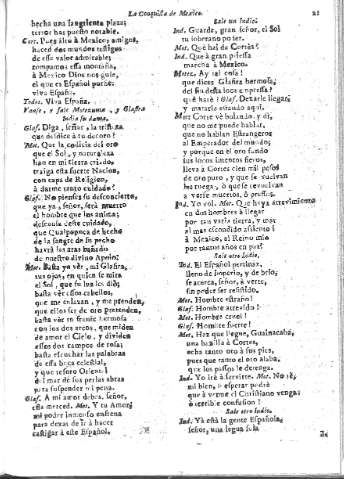 La Conquista de Mexico. 21
hecha una sangrienta plaza
terror has puesto notable.
Cort. Puesto a Mexico, amigos,
haced dos mundos testigos
de este valor admirable;
rompamos esta montaña,
à Mexico Dios nos guie,
el que es Español parta;
viva España.
Todos. Viva España.
Vanse, y sale Motezuma, y Glafira
India su dama.
Glaf. Diga, señor, la tristeza
que desdice à tu decoro?
Mot. Que la codicia del oro
que el Sol, y naturaleza
han en mi tierra criado,
traiga esta fuerte Nacion,
con capa de Religion,
à darme tanto cuidado?
Glaf. No pienses tu desconcierto,
que ya, señor, será muerto
el hombre que los anima;
descuida este cuidado,
que Qualpopoca de hecho
de la sangre de su pecho
havrá las aras bañado
de nuestro divino Apolo.
Mot. Basta ya vèr, mi Glafira,
tus ojos, en quien se mira
el Sol, que
basta vèr essos cabellos,
que me enlazan, y me prenden,
que ellos sè de oro pretenden,
basta vèr tu frente hermosa
con los dos arcos, que miden
de amor el Cielo, y dividen
essos dos campos de rosa;
basta escuchar las palabras
de essa boca celestial,
y que tesoro Oriental
del mar de sus perlas abras
para suspender mi pena.
Glaf. A mi amor debes, señor,
essa merced. Mot. Y tu Amor;
mi poder inmenso enfrena
para dexar de ir à hacer
castigar à este Español.
Sale un Indio.
Ind. Guarde, gran señor, el Sol
tu soberano poder.
Mot. Què hai de Cortès?
Ind. Que à gran priessa
marcha à Mexico.
Motez. Ay tal cosa!
que dices Glafira hermosa;
del su desta loca empressa?
què harè? Glaf. Detarle llegar,
y matarle estando aqui.
Mot. Corte vè bolando, y di,
que no me puede hablar,
que no hablan Estrangeros
al Emperador del mundo;
y porque en el oro fundo
sus locos intentos fieros,
lleva à Cortès cien mil pesos
de oro puro, y que se vuelvan
luego, ò que se resuelvan
à verse muertos, ò presos.
Ind. Yo vol. Mot. Que haya atrevimiento
en dos hombres à llegar
por tan varia tierra, y mar
al mas escondido assiento!
à Mexico, al Reino mio
por tantos años en paz!
Sale otro Indio.
Ind. El Español pertinaz,
lleno de imperio, y de brio,
se acerca, señor, à verte,
sin poder ser resistido.
Mot. Hombre estraño!
Glaf. Hombre atrevido!
Mot. Hombre cruel!
Glaf. Hombre fuerte!
Mot. Haz que llegue, Guainacabà,
una baxilla à Cortès,
echa tanto oro à sus pies,
pues que tanto el oro alaba,
que los passos le detenga.
Ind. Yo irè à servirte. Mot. No sè,
mi bien, si esperar podrè
que à verme el Christiano venga:
ò terrible confusion!
Sale otro Indio.
Ind. Yà està la gente Española,
señor, una legua sola